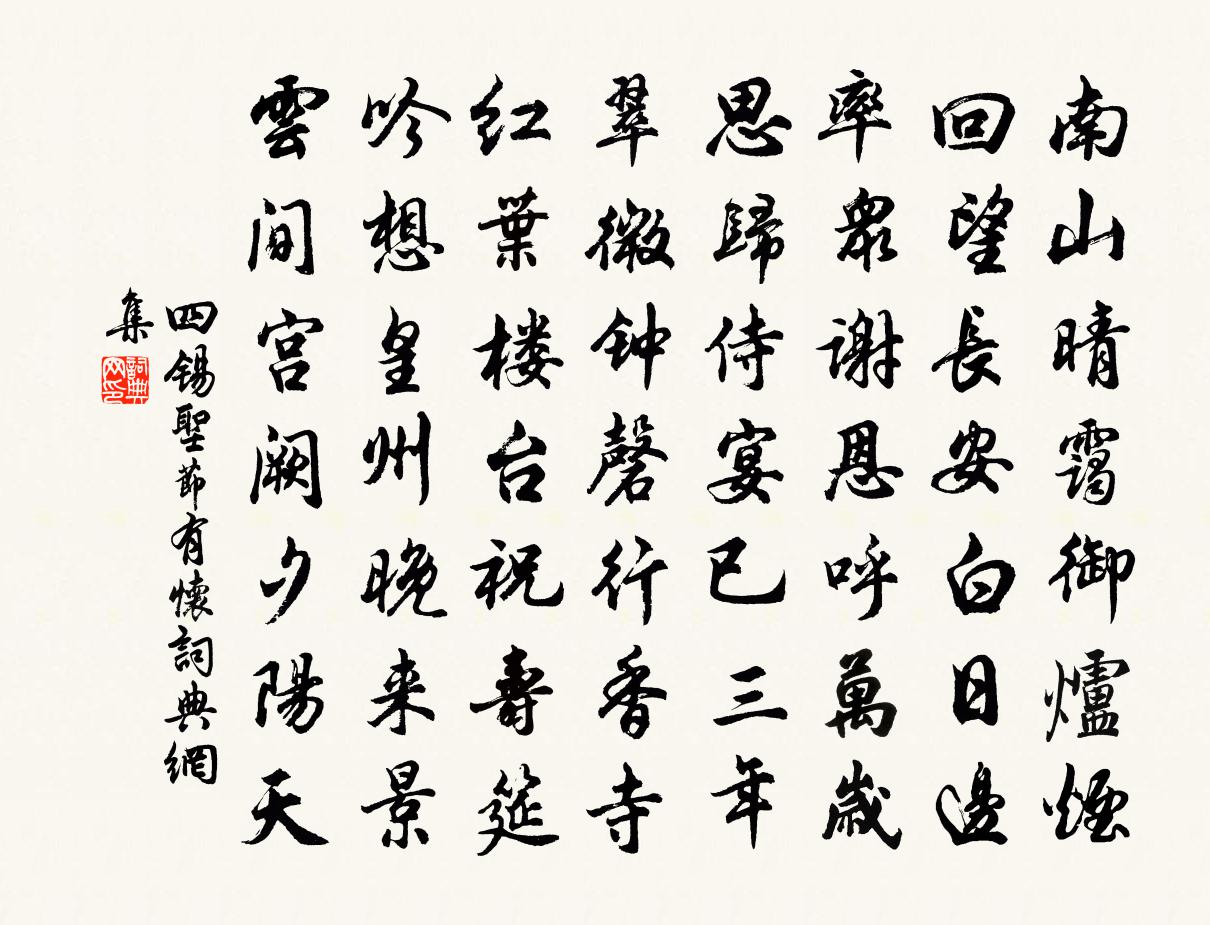 南山晴靄御爐煙
回望長安白日邊
率衆謝恩呼萬歲
思歸侍宴已三年
翠微钟磬行香寺
红葉楼台祝壽筵
吟想皇州晚来景
雲间宫阙夕陽天
四锡聖節有懷詞典網
集
詞典
网印